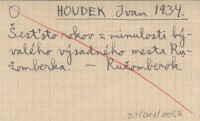 HOUDEK Ivan 1934.
Šesťsto rokov z minulosti bý-
valého výsadného mesta Ru-
žomberka. — Ružomberok.